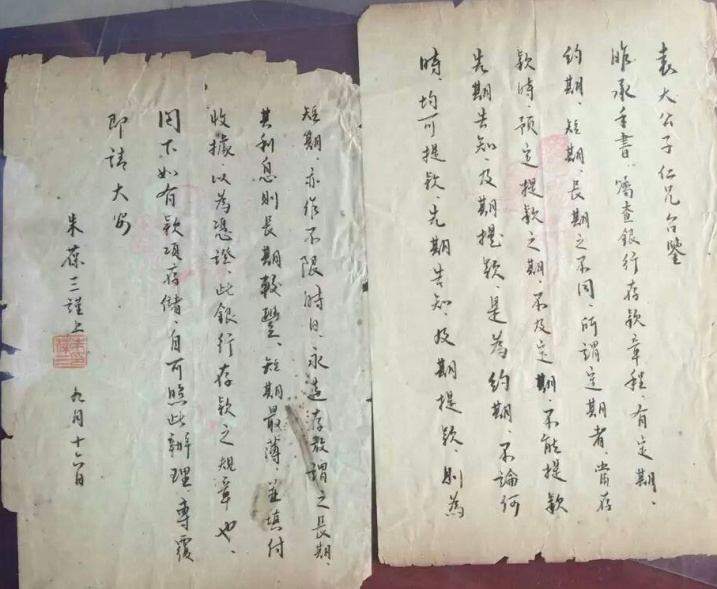 袁大公子仁兄台鑒
昨承手書、囑查銀行存款章程、有定期、
約期、短期、長期之不同、所謂定期者、當存
款時、預定提款之期、不及定期、不能提款
先期告知、及期提款、是為約期、不論何
時、均可提款、先期告知、及期提款、則為
短期、亦作不限時日、永遠存放謂之長期、
其利息則長期較豐、短期最薄、並填付
收據、以為憑證、此銀行存款之規章也、
閣下如有款項存儲、自可照此辦理、專覆
即請大安
朱葆三謹上
九月十六日